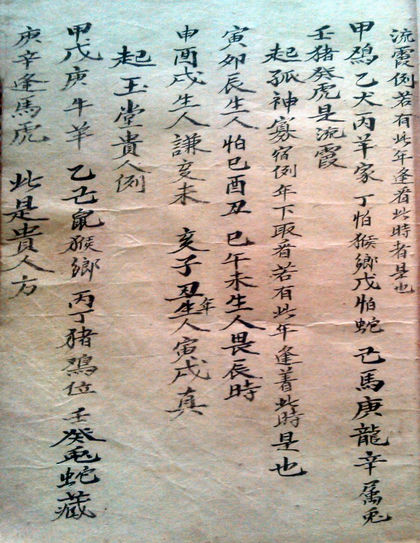 流霞例若有此年逢看此時者是也
甲鴔乙犬丙羊家 丁怕猴鄉戊怕蛇 己馬庚龍辛属兎
壬猪癸虎是流霞
起孤神寡宿例年下取看若有此年逢着此時是也
寅卯辰生人怕巳酉丑 巳午未生人畏辰時
申酉戌生人謙亥未 亥子丑年生人寅戌真
起玉堂貴人例
甲戊庚牛羊 乙己鼠猴鄉 丙丁猪鴔位 壬癸兎蛇藏
庚辛逢馬虎 此是貴人方